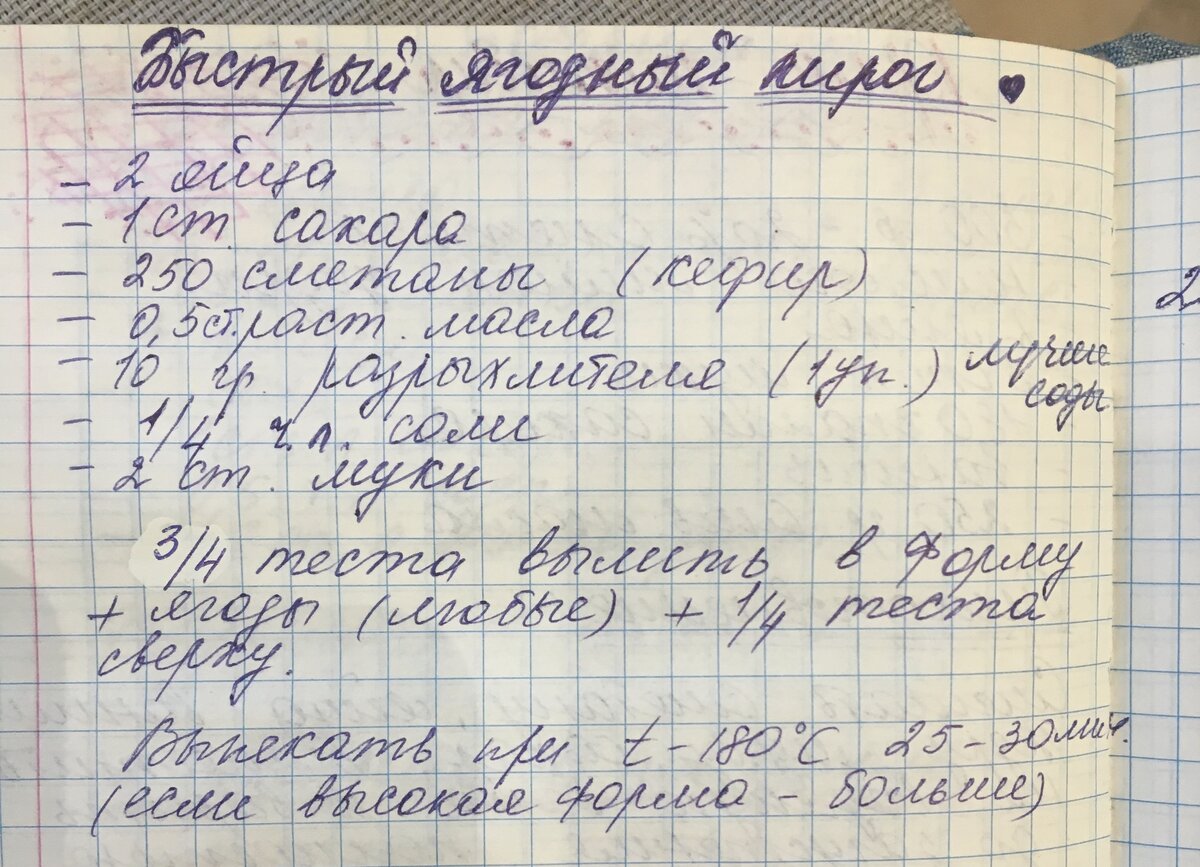 Быстрый ягодный пирог
- 2 яйца
- 1 ст. сахара
- 250 сметаны (кефир)
- 0,5 ст. раст. масла
- 10 гр. разрыхлителя (1 уп.) лучше
соды
- 1/4 ч.л. соли
- 2 ст. муки
3/4 теста вылить в форму
+ ягоды (любые) + 1/4 теста
сверху.
Выпекать при t - 180°C 25-30 мин.
(если высокая форма - больше)
2